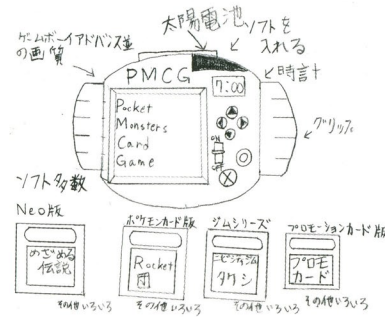 ゲームボーイアドバンス並
の画質
太陽電池
ソフトを
入れる
時計
PMCG
7:00
Pocket
Monsters
Card
Game
ON
OFF
グリップ
ソフト多数
Neo版
めざめる
伝説
その他いろいろ
ポケモンカード版
Rocket
団
その他いろいろ
ジムシリーズ
ニビシティジム
タケシ
その他いろいろ
プロモーションカード版
プロモ
カード
その他いろいろ